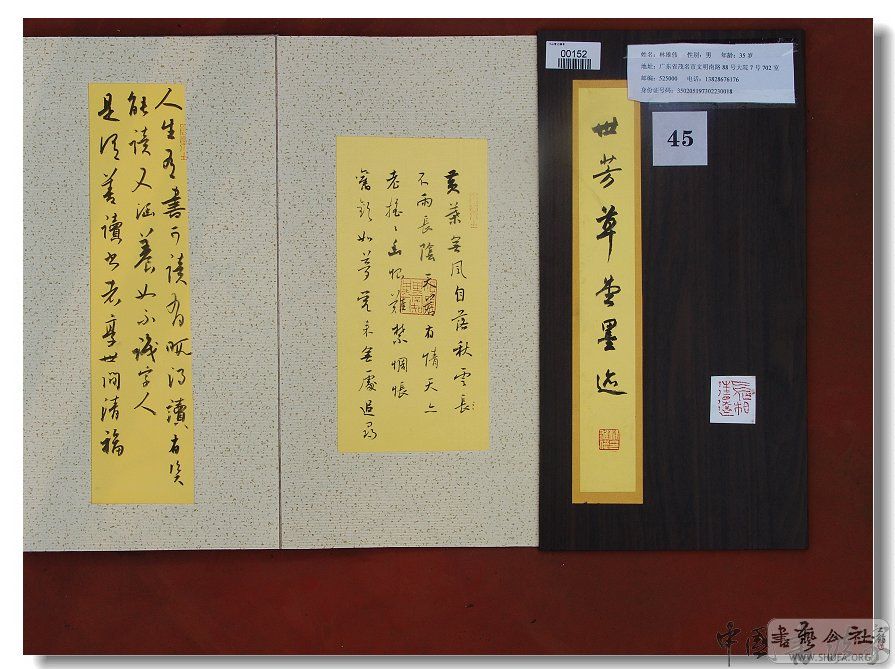 00152
姓名：林维伟 性别：男 年龄：35岁
地址：广东省茂名市文明南路88号大院7号702室
邮编：525000 电话：13828676176
身份证号码：350205197302230018
45
世芳草堂墨迹
黄葉無風自落秋雲長
不雨長陰天若有情天亦
老摇〻幽恨難禁惆悵
舊歡如夢覺来無處追尋
人生有書可讀有暇得讀有資
能讀又涵養如不識字人
是謂善讀書者享世間清福
中国書藝公社
WWW.SHUFA.ORG